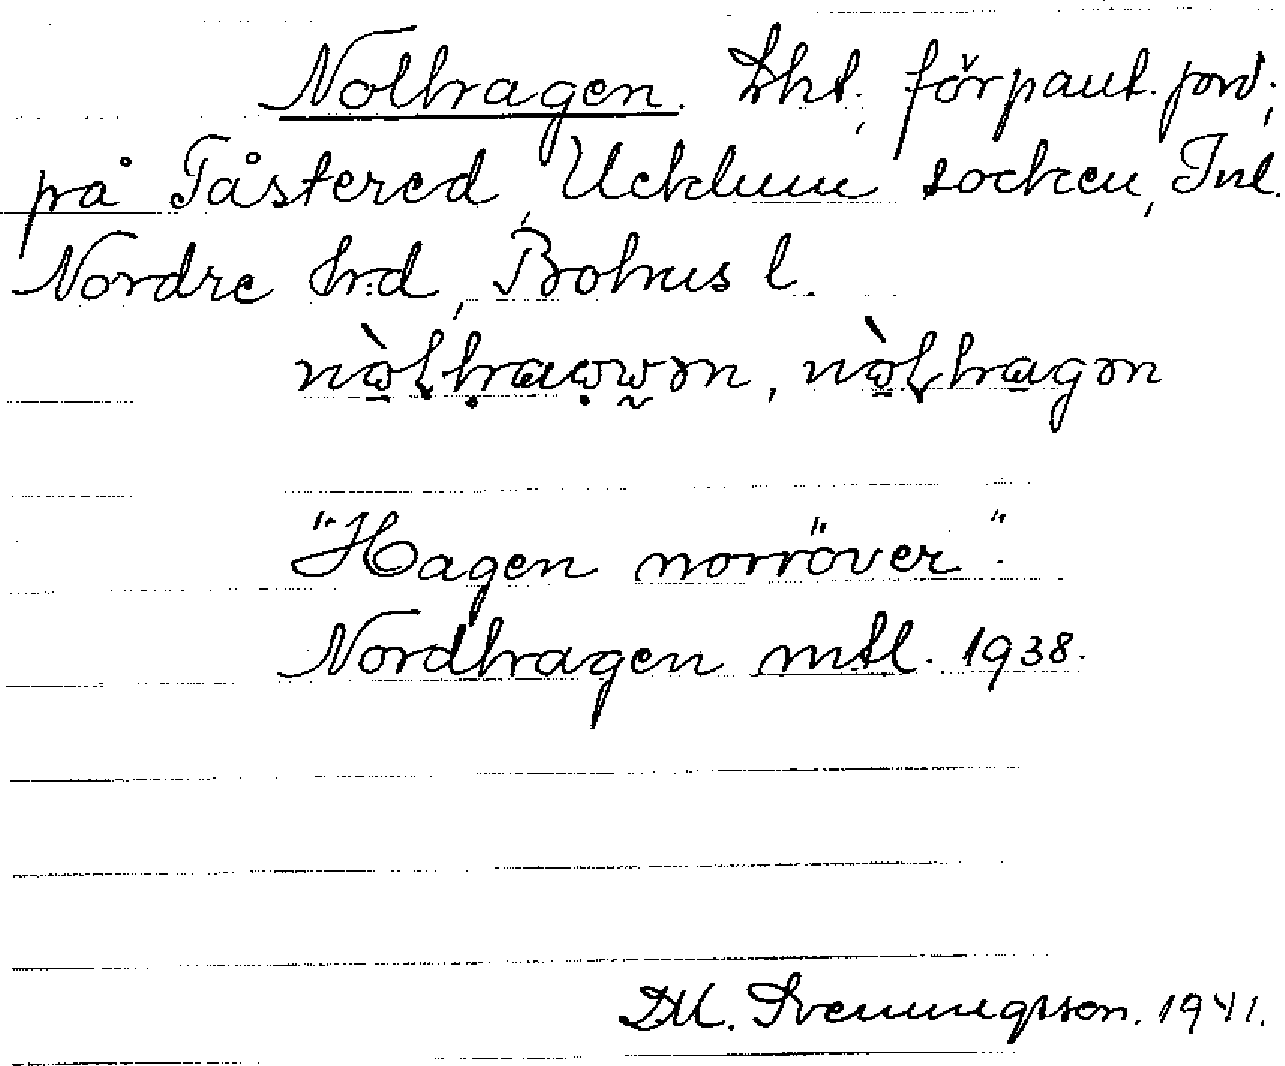 Nolhagen. Lht, förpaut. jord;
på Tåstered, Ucklum socken, Inl.
Nordre hrd, Bohus l.
"Hagen norröver".
Nordhagen mtl. 1938.
DM. Svenningsson. 1941.